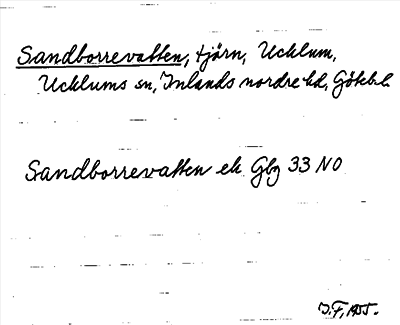 Sandborrevatten, tjärn, Ucklum,
Ucklums sn, Inlands nordre hd, Götebl.
Sandborrevatten ek Gbg 33 NO
J.F. 1955.